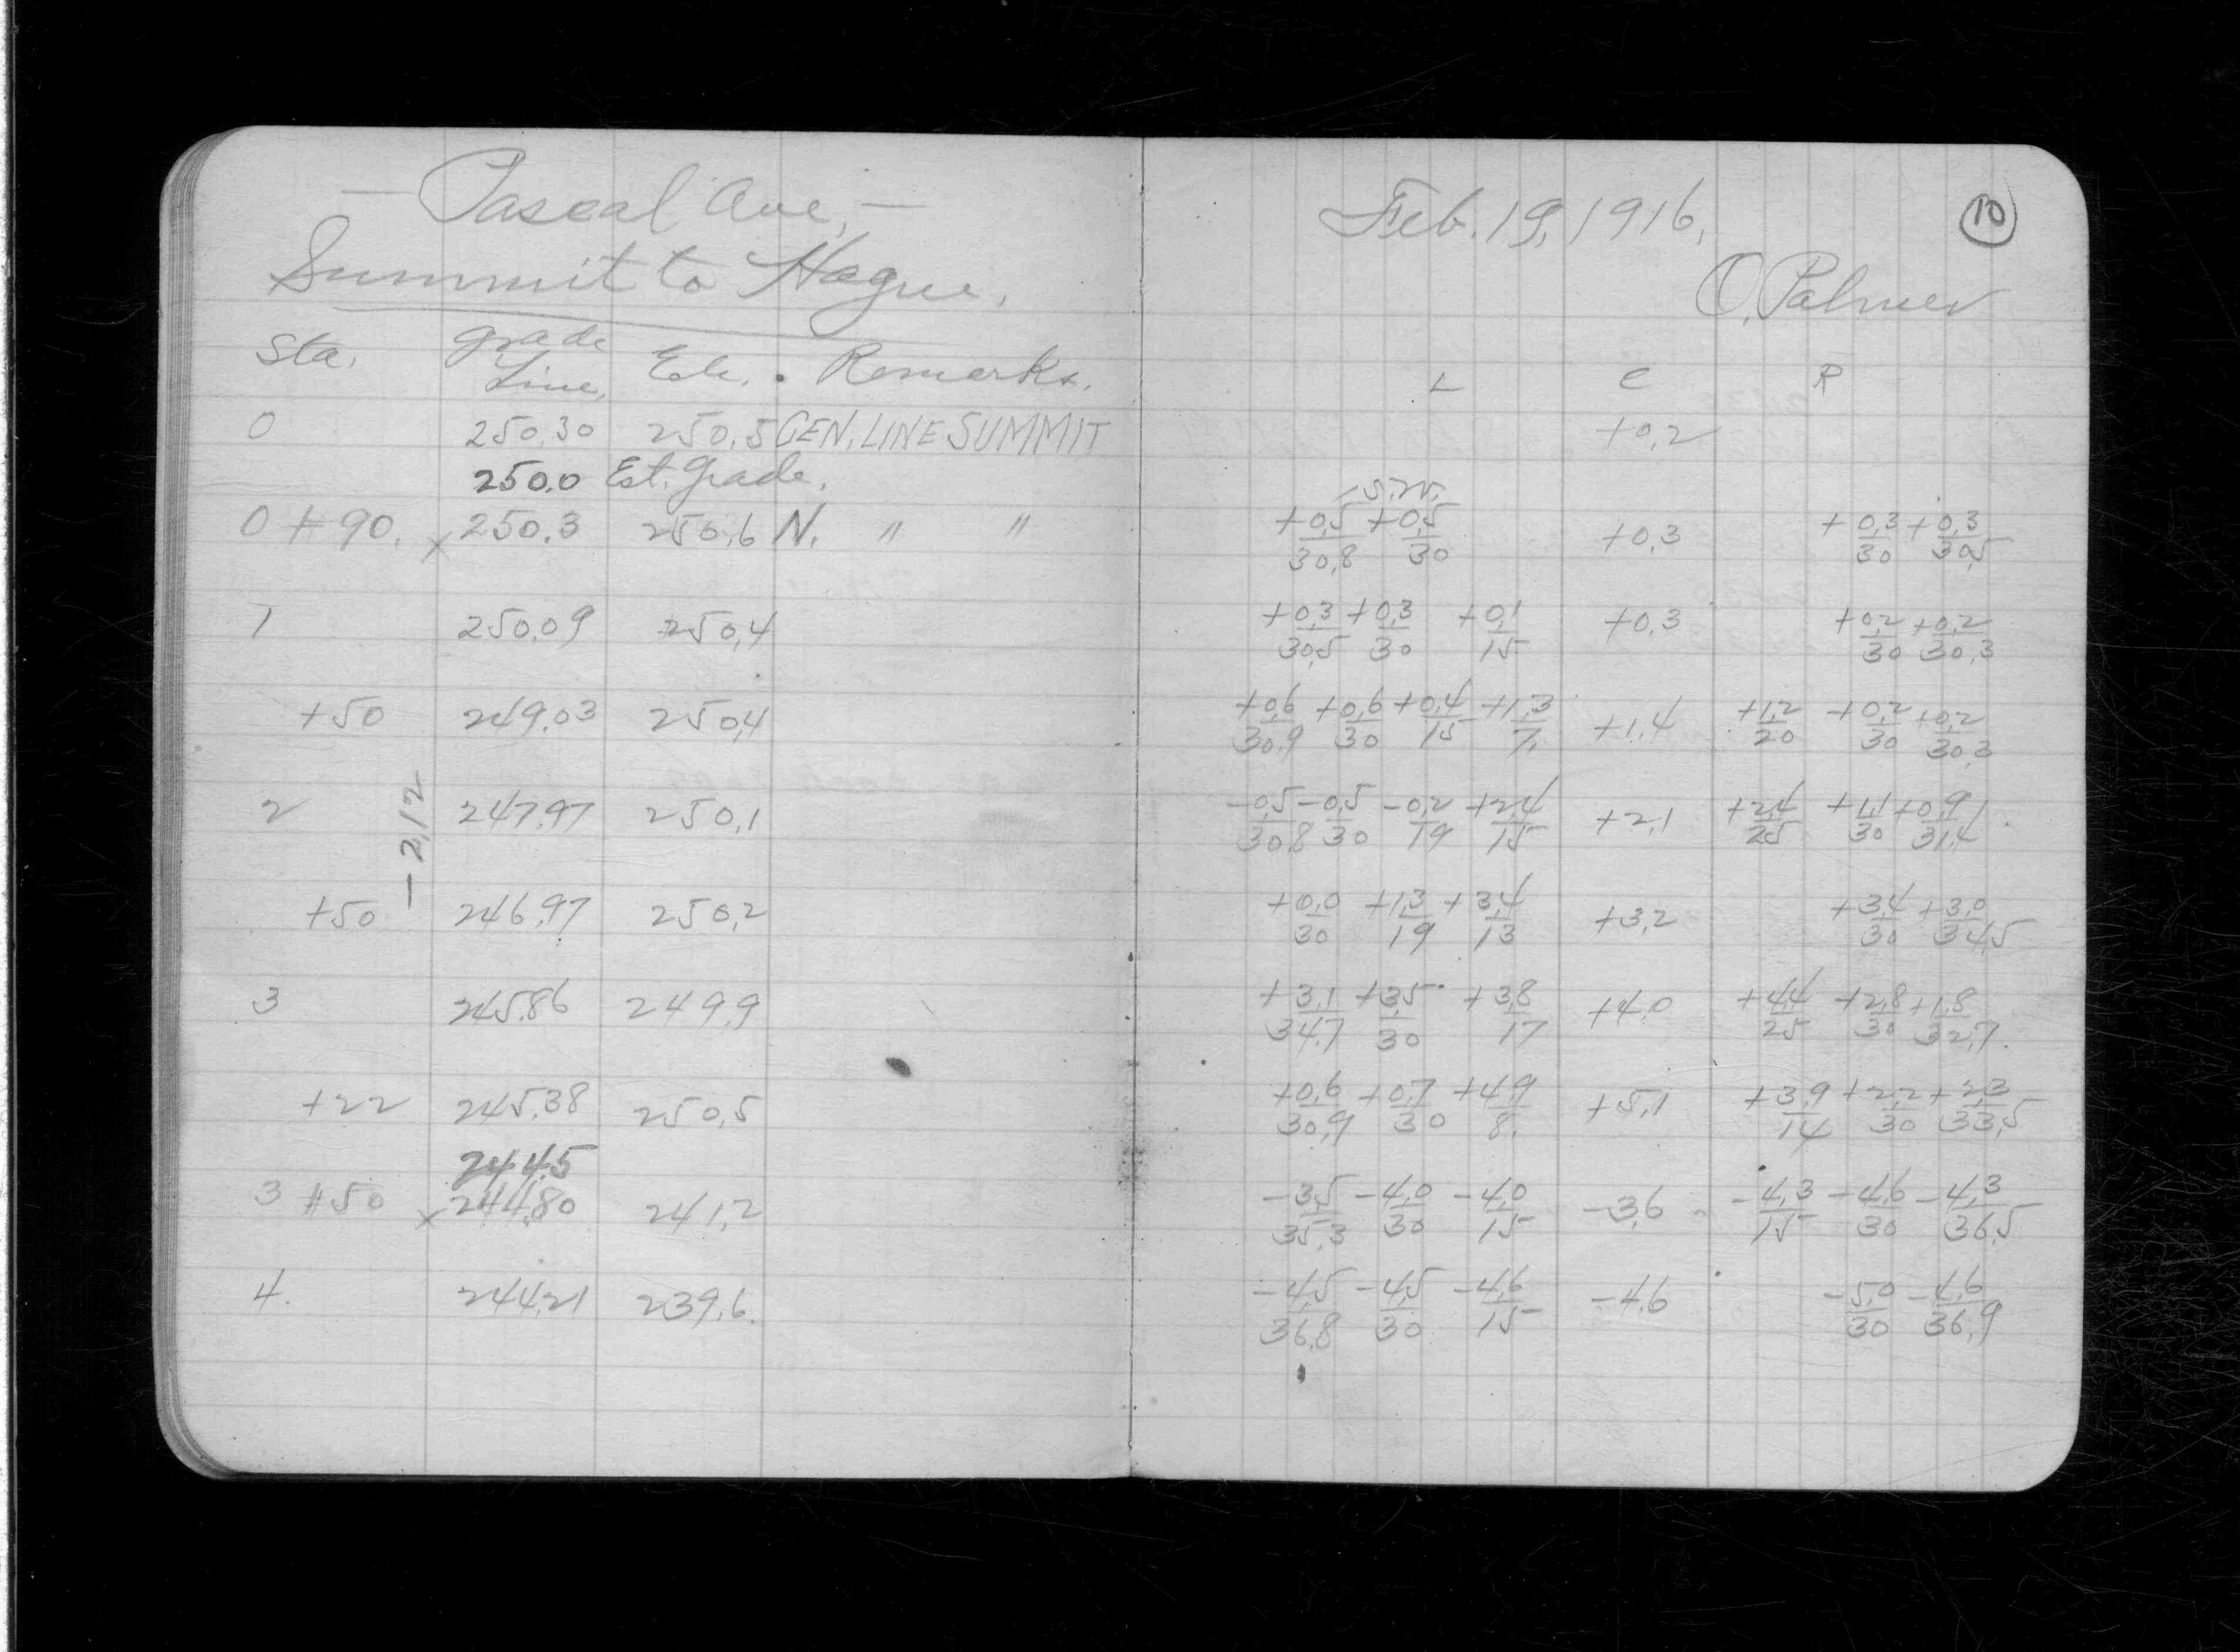 — Pascal Ave, —
Summit to Hague.
Sta. Grade Line, Ele. Remarks.
0 250.30 250.5 CEN. LINE SUMMIT
250.0 Est. Grade.
0 + 90. x 250.3 250.6 N. " "
1 250.09 250.4
+50 249.03 250.4
2 247.97 250.1
- 2.12
+50 246.97 250.2
3 245.86 249.9
+22 245.38 250.5
244.5
3 + 50 x 244.80 241.2
4. 244.21 239.6.
Feb. 19, 1916, 10
O. Palmer
L C R
+0.2
S.W.
+0.5/30.8 +0.5/30 +0.3 +0.3/30 +0.3/30.5
+0.3/30.5 +0.3/30 +0.1/15 +0.3 +0.2/30 +0.2/30.3
+0.6/30.9 +0.6/30 +0.4/15 +1.3/7. +1.4 +1.2/20 +0.2/30 +0.2/30.3
-0.5/30.8 -0.5/30 -0.2/19 +2.4/15 +2.1 +2.4/25 +1.1/30 +0.9/31.4
+0.0/30 +1.3/19 +3.4/13 +3.2 +3.4/30 +3.0/34.5
+3.1/34.7 +3.5/30 +3.8/17 +4.0 +4.4/25 +2.8/30 +1.8/32.7.
+0.6/30.9 +0.7/30 +4.9/8. +5.1 +3.9/14 +2.2/30 +2.3/33.5
-3.5/35.3 -4.0/30 -4.0/15 -3.6 -4.3/15 -4.6/30 -4.3/36.5
-4.5/36.8 -4.5/30 -4.6/15 -4.6 -5.0/30 -4.6/36.9